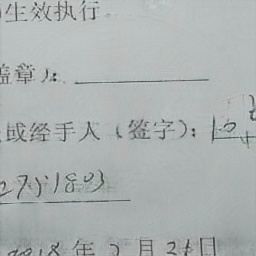 )生效执行
盖章):
或经手人(签字):
2751803
2018年2月26日